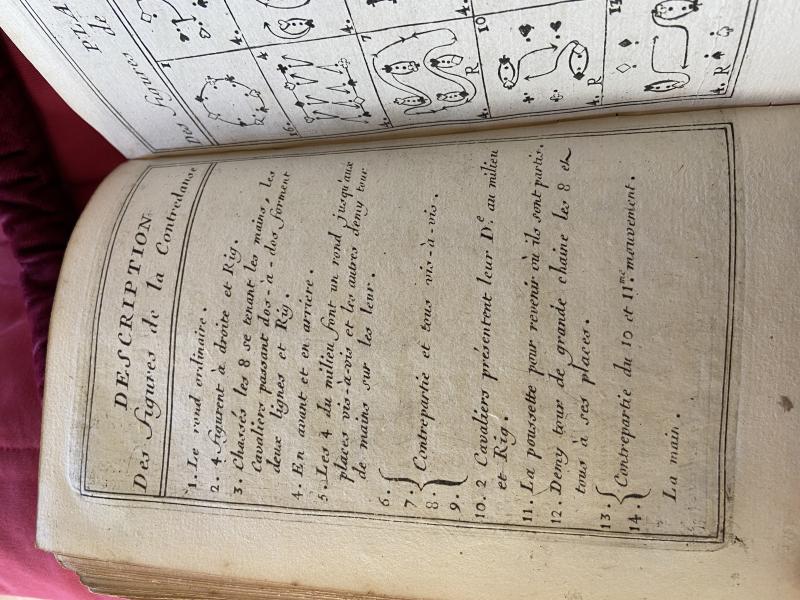 DESCRIPTION
Des figures de la Contredanse
1. Le rond ordinaire.
2. 4 figurent à droite et Rig.
3. Chassés les 8 se tenant les mains, les
Cavaliers passant dos-à-dos forment
deux lignes et Rig.
4. En avant et en arriere.
5. Les 4 du milieu font un rond jusqu'aux
places vis-à-vis et les autres demy tour
de mains sur les leur.
6.
7. Contrepartie et tous vis-à-vis.
8.
9.
10. 2 Cavaliers présentent leur De. au milieu
et Rig.
11. La poussette pour revenir où ils sont partis.
12. Demy tour de grande chaine les 8 et
tous à ses places.
13. Contrepartie du 10 et 11me. mouvement.
14.
La main.
PLA
Des figures de
1
4.
4.
4
4.
6.
7
4.
R
10
4.
R
13
4.
R